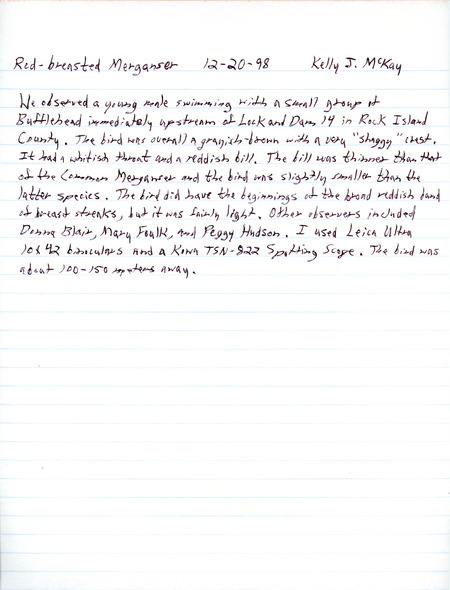 Red-breasted Merganser 12-20-98 Kelly J. McKay
We observed a young male swimming with a small group of
Bufflehead immediately upstream of Lock and Dam 14 in Rock Island
County. The bird was overall a grayish-brown with a very "shaggy" crest.
It had a whitish throat and a reddish bill. The bill was thinner than that
of the Common Merganser and the bird was slightly smaller than the
latter species. The bird did have the beginnings of the broad reddish band
of breast streaks, but it was fairly light. Other observers included
Donna Blair, Mary Foulk, and Peggy Hudson. I used Leica Ultra
10x42 binoculars and a Kowa TSN-822 Spotting Scope. The bird was
about 100-150 meters away.